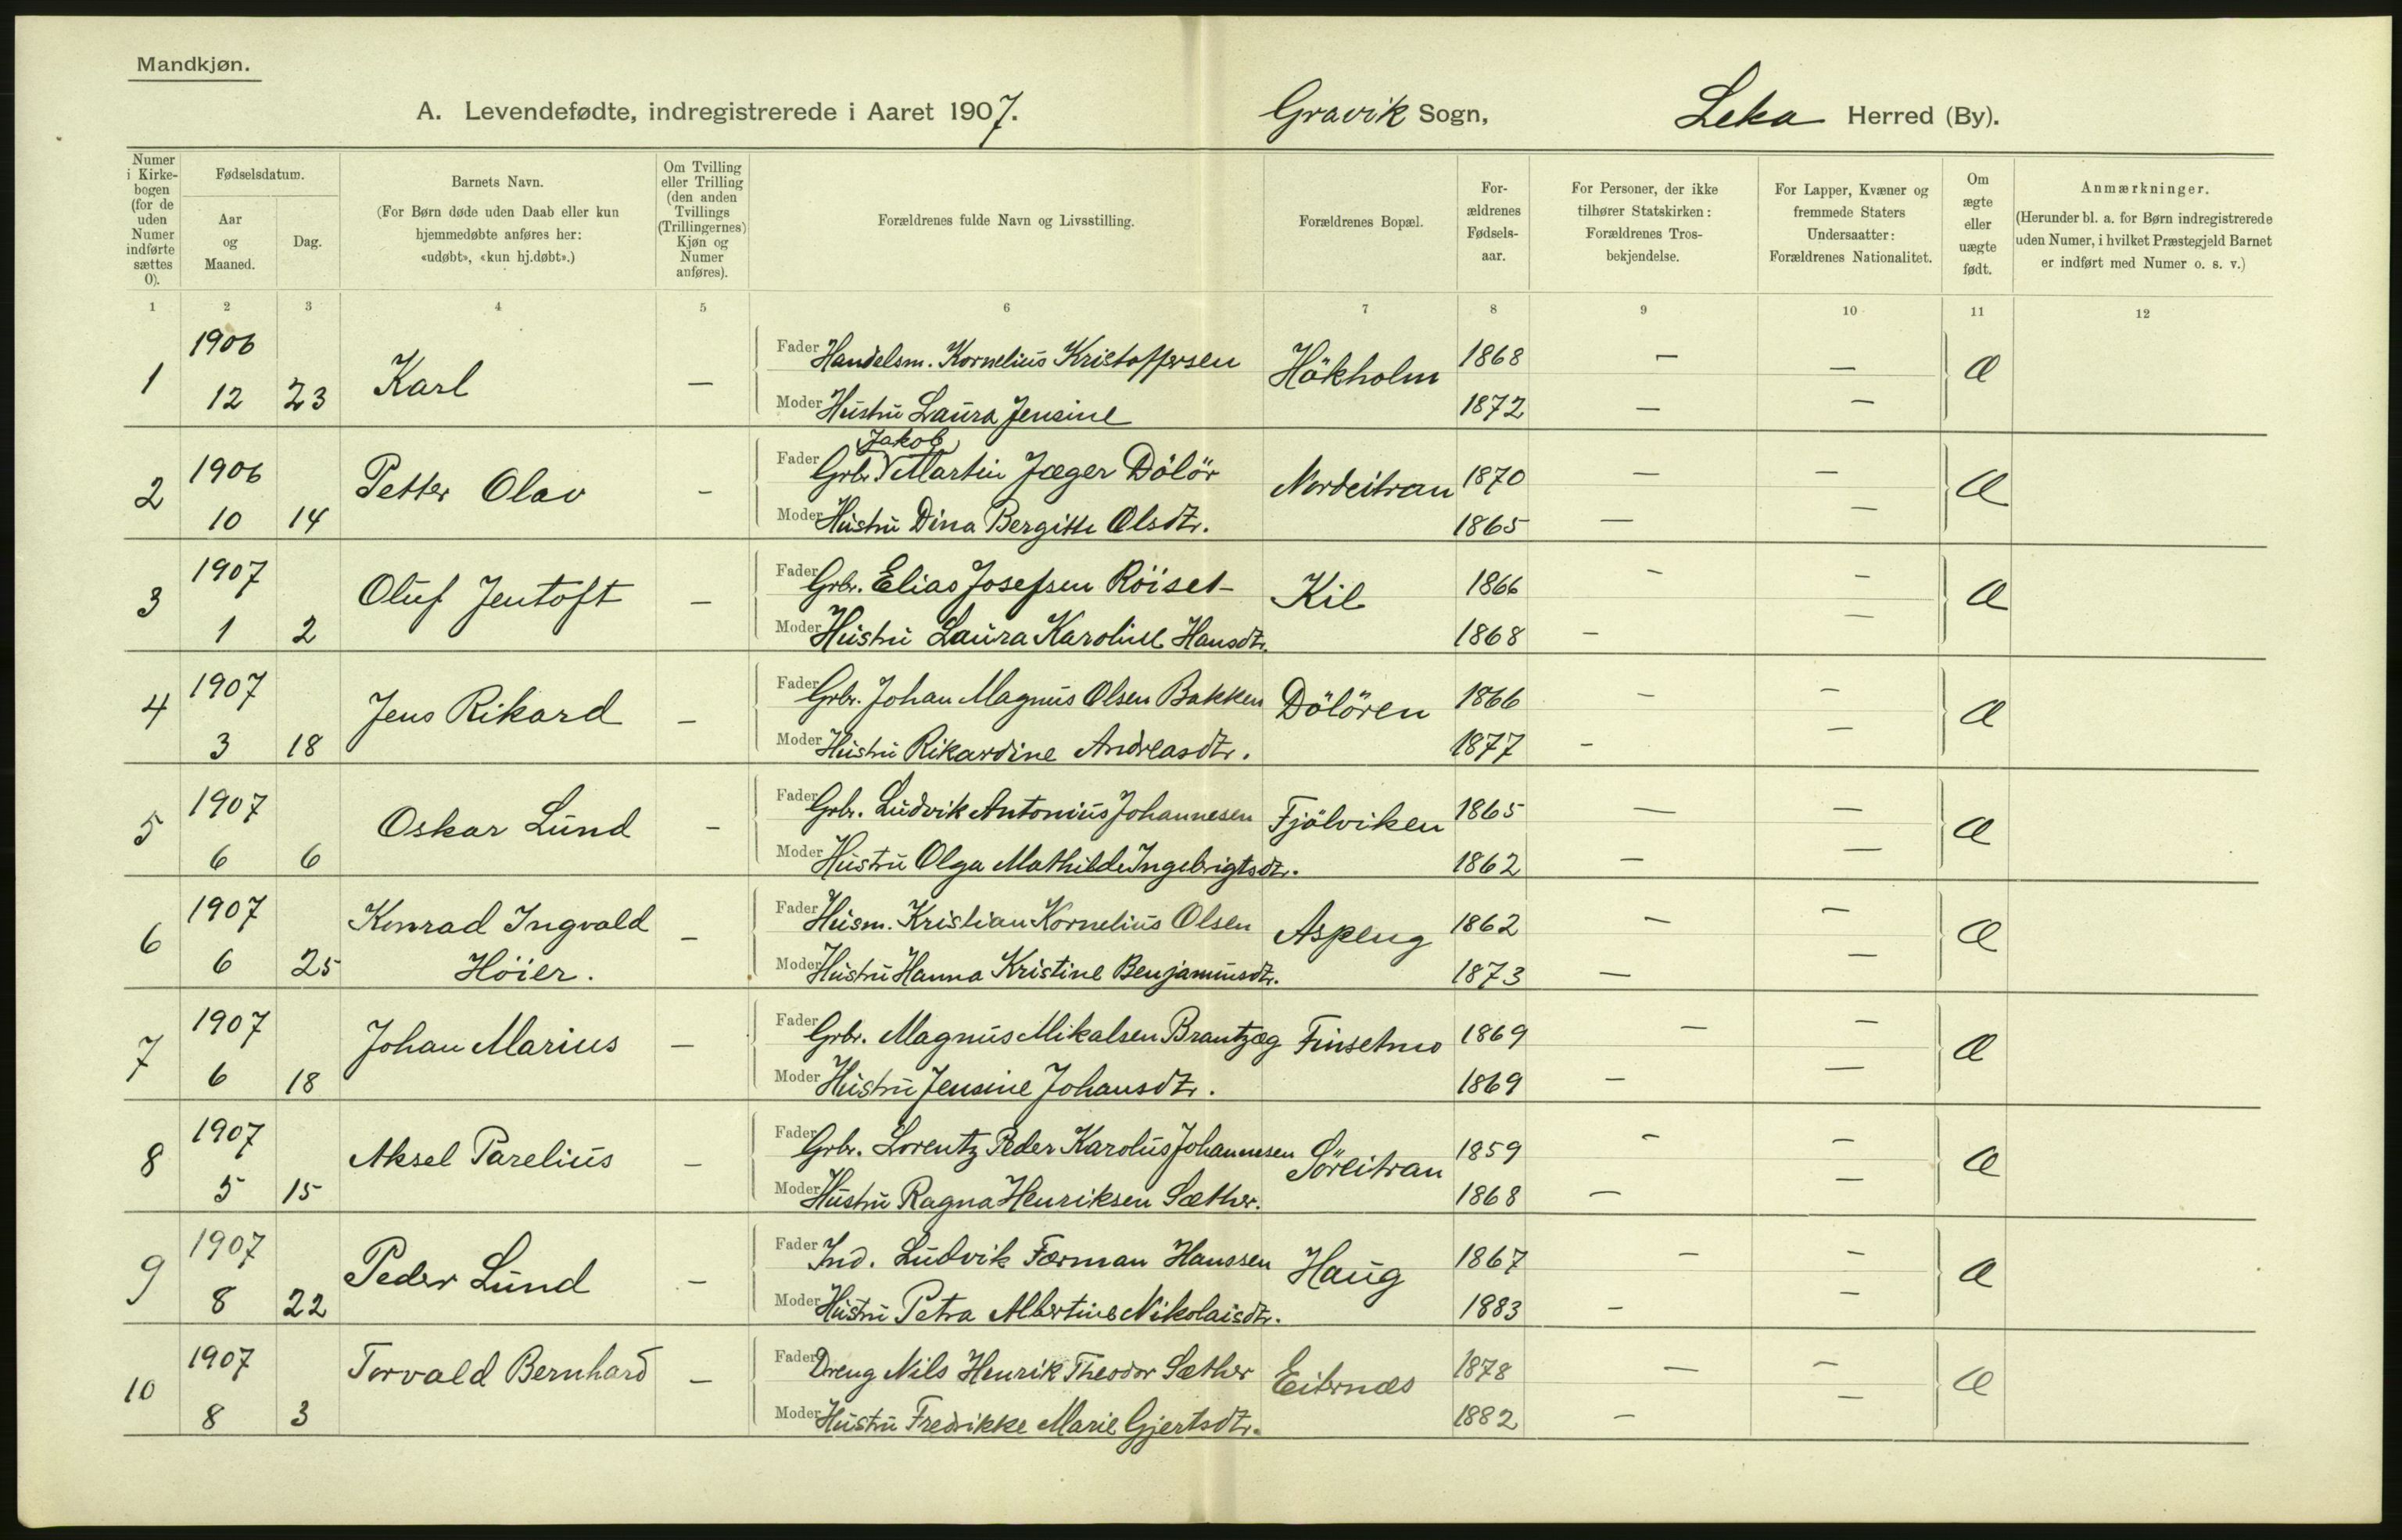 Mandkjøn.
A. Levendefødte, indregistrerede i Aaret 1907. Gravik Sogn, Leka Herred (By).
Numer i Kirkebogen (for de uden Numer indførte sættes 0).
Fødselsdatum.
Aar og Maaned.
Dag.
Barnets Navn.
(For Børn døde uden Daab eller kun hjemmedøbte anføres her: «udøbt», «kun hj.døbt».)
Om Tvilling eller Trilling (den anden Tvillings (Trillingernes) Kjøn og Numer anføres).
Forældrenes fulde Navn og Livsstilling.
Forældrenes Bopæl.
Forældrenes Fødselsaar.
For Personer, der ikke tilhører Statskirken: Forældrenes Trosbekjendelse.
For Lapper, Kvæner og fremmede Staters Undersaatter: Forældrenes Nationalitet.
Om ægte eller uægte født.
Anmærkninger.
(Herunder bl. a. for Børn indregistrerede uden Numer, i hvilket Præstegjeld Barnet er indført med Numer o. s. v.)
1 2 3 4 5 6 7 8 9 10 11 12
1 1906 12 23 Karl — Fader Handelsm. Kornelius Kristoffersen Hökholm 1868 — — Æ
Moder Hustru Laura Jensine 1872 — —
2 1906 10 14 Petter Olav - Fader Grbr. Jakob Martin Jæger Dölör Nordeitran 1870 — — Æ
Moder Hustru Dina Bergitte Olsdtr. 1865 — —
3 1907 1 2 Oluf Jentoft — Fader Grbr. Elias Josefsen Röiset Kil 1866 - — Æ
Moder Hustru Laura Karoline Hansdtr. 1868 — —
4 1907 3 18 Jens Rikard — Fader Grbr. Johan Magnus Olsen Bakken Dölören 1866 — — Æ
Moder Hustru Rikardine Andreasdtr. 1877 - —
5 1907 6 6 Oskar Lund — Fader Grbr. Ludvik Antonius Johannesen Fjölviken 1865 — — Æ
Moder Hustru Olga Mathilde Ingebrigtsdtr. 1862 — —
6 1907 6 25 Konrad Ingvald Höier. — Fader Husm. Kristian Kornelius Olsen Aspeng 1862 — — Æ
Moder Hustru Hanna Kristine Benjaminsdtr. 1873 — —
7 1907 6 18 Johan Marius — Fader Grbr. Magnus Mikalsen Brantzæg Finsetmo 1869 — — Æ
Moder Hustru Jensine Johansdtr. 1869 — —
8 1907 5 15 Aksel Parelius — Fader Grbr. Lorentz Peder Karolus Johannesen Söreitran 1859 - — Æ
Moder Hustru Ragna Henriksen Sæther. 1868 — —
9 1907 8 22 Peder Lund — Fader Ind. Ludvik Færman Hanssen Haug 1867 — — Æ
Moder Hustru Petra Albertine Nikolaisdtr. 1883 - —
10 1907 8 3 Torvald Bernhard — Fader Dreng Nils Henrik Theodor Sæther Eiternæs 1878 — — Æ
Moder Hustru Fredrikke Marie Gjertsdtr. 1882 — —